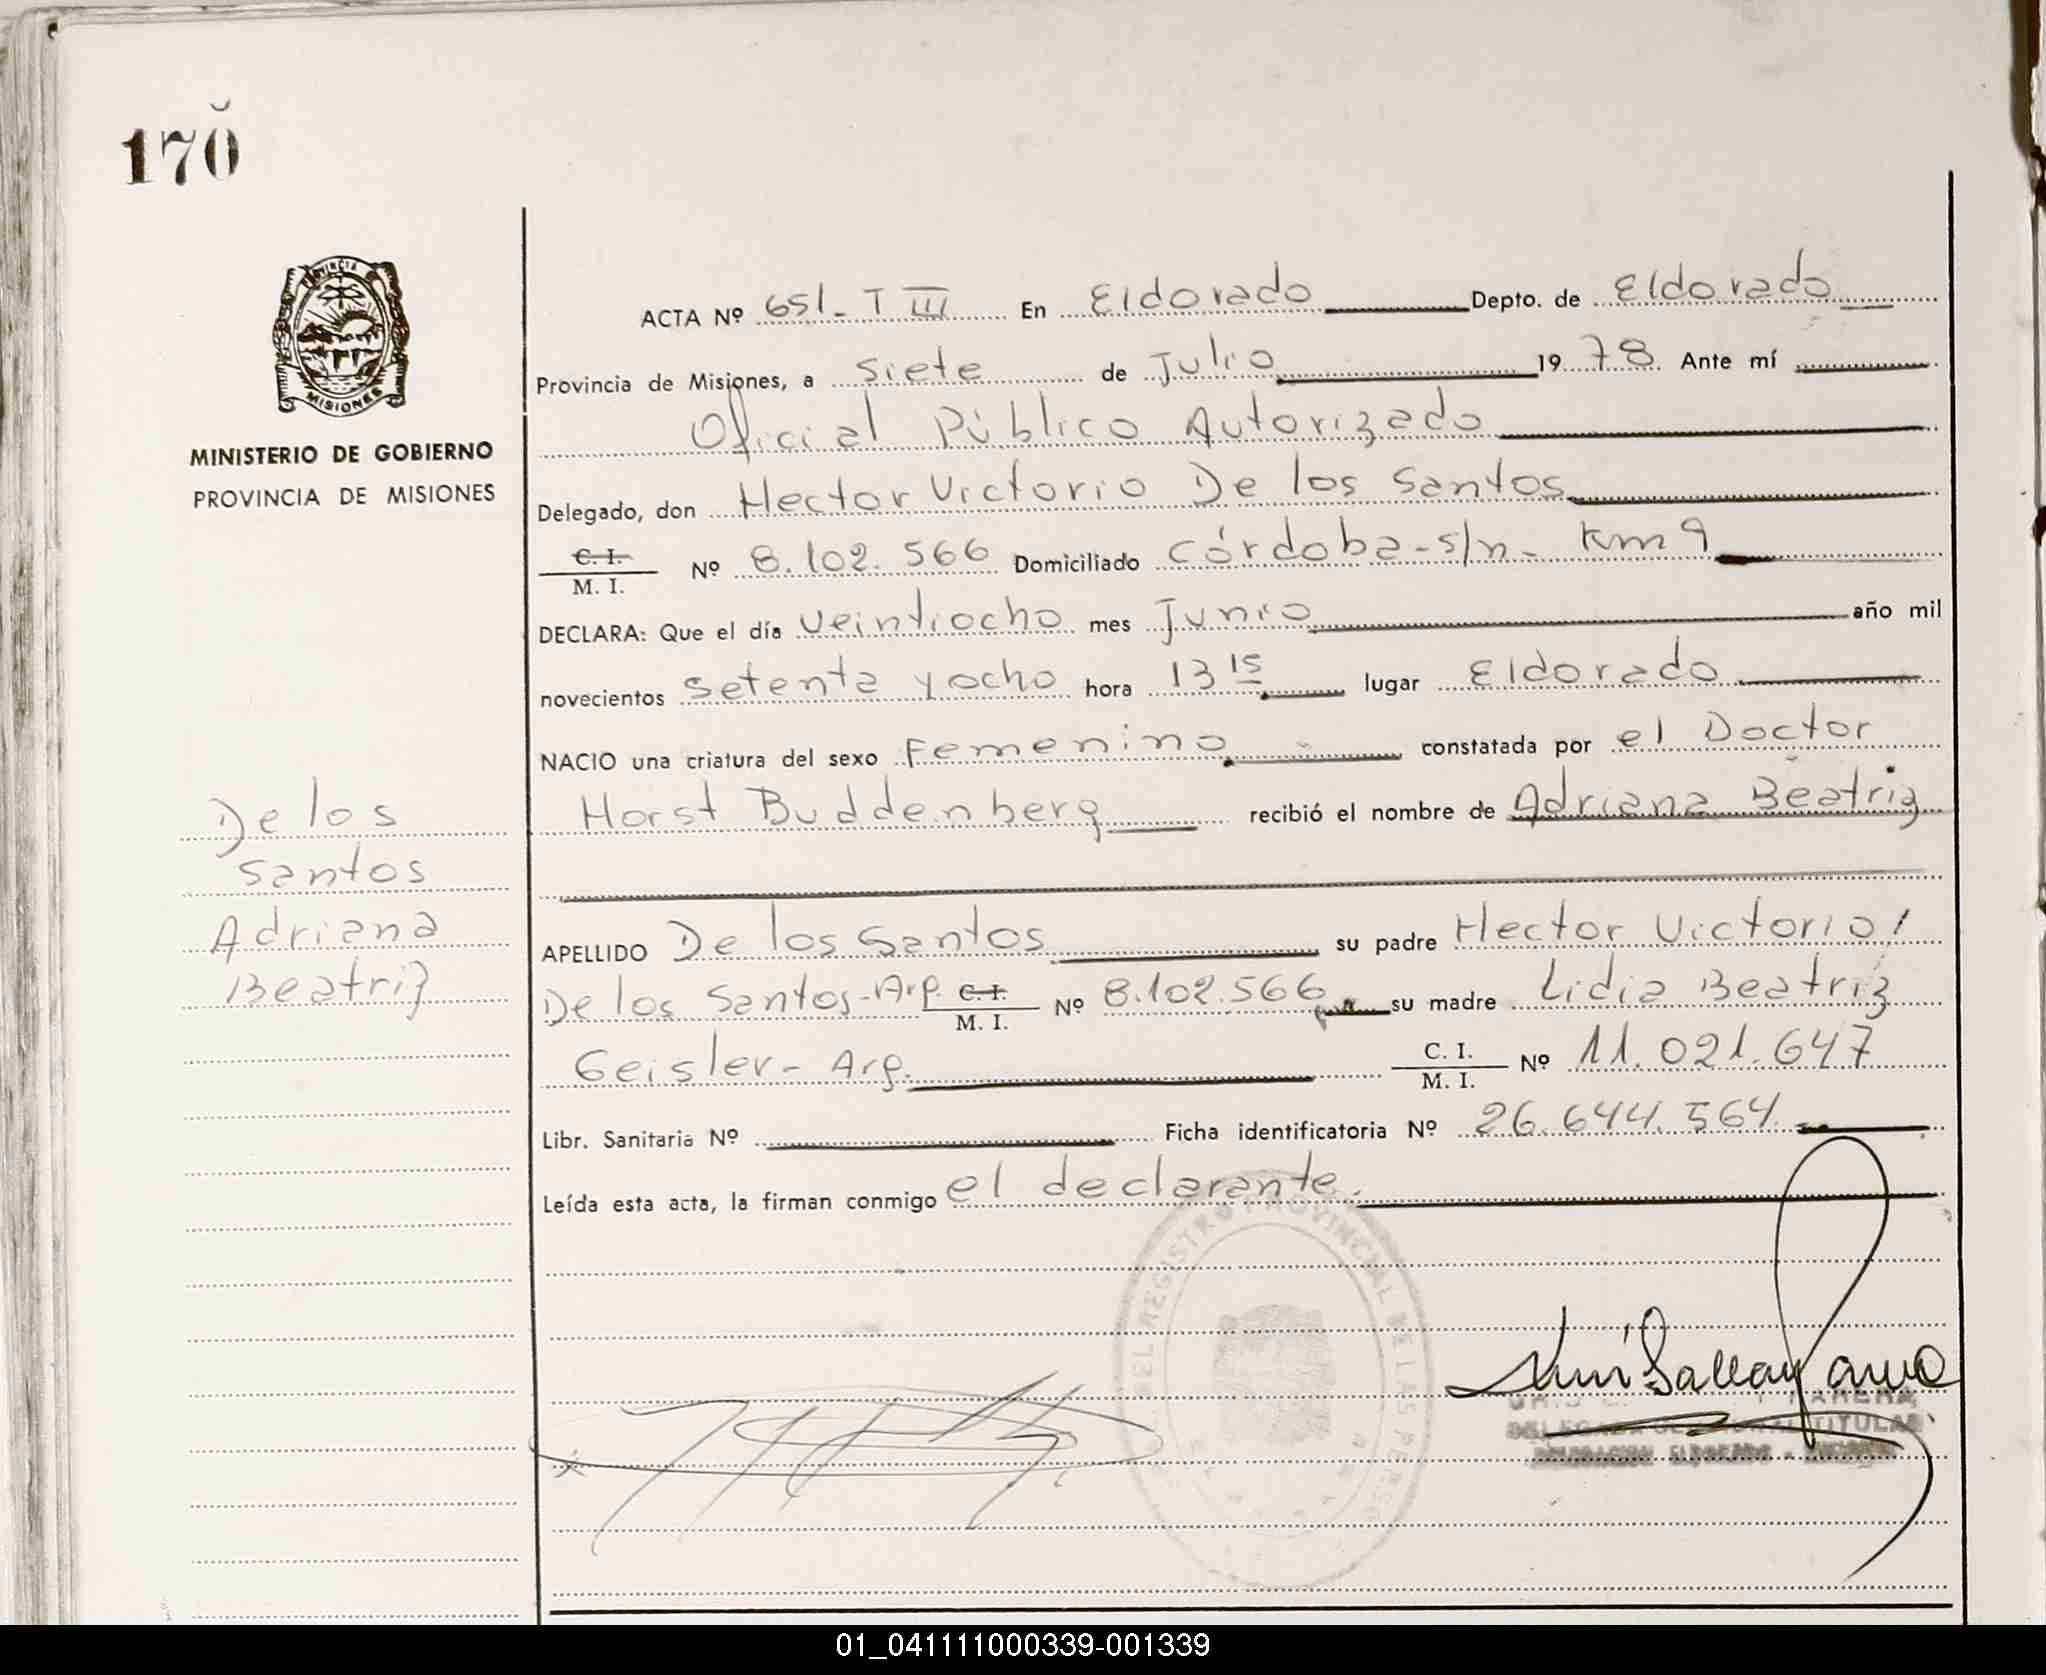 170
PROVINCIA
MISIONES
MINISTERIO DE GOBIERNO
PROVINCIA DE MISIONES
ACTA Nº 651-T III En Eldorado Depto. de Eldorado
Provincia de Misiones, a siete de Julio 1978 Ante mí
Oficial Público Autorizado
Delegado, don Hector Victorio De los Santos
C. I.
M. I. Nº 8.102.566 Domiciliado Córdoba-s/n- Km 9
DECLARA: Que el día veintiocho mes Junio año mil
novecientos setenta y ocho hora 13 15 lugar Eldorado
NACIO una criatura del sexo Femenino constatada por el Doctor
Horst Buddenberg recibió el nombre de Adriana Beatriz
De los
Santos
Adriana
Beatriz
APELLIDO De los Santos su padre Hector Victorio/
De los Santos-Arg. C. I.
M. I. Nº 8.102.566 su madre Lidia Beatriz
Geisler- Arg. C. I.
M. I. Nº 11.021.647
Libr. Sanitaria Nº Ficha identificatoria Nº 26.644.564
Leída esta acta, la firman conmigo el declarante.
DEL REGISTRO PROVINCIAL DE LAS PERSO
TITULAR
01_041111000339-001339